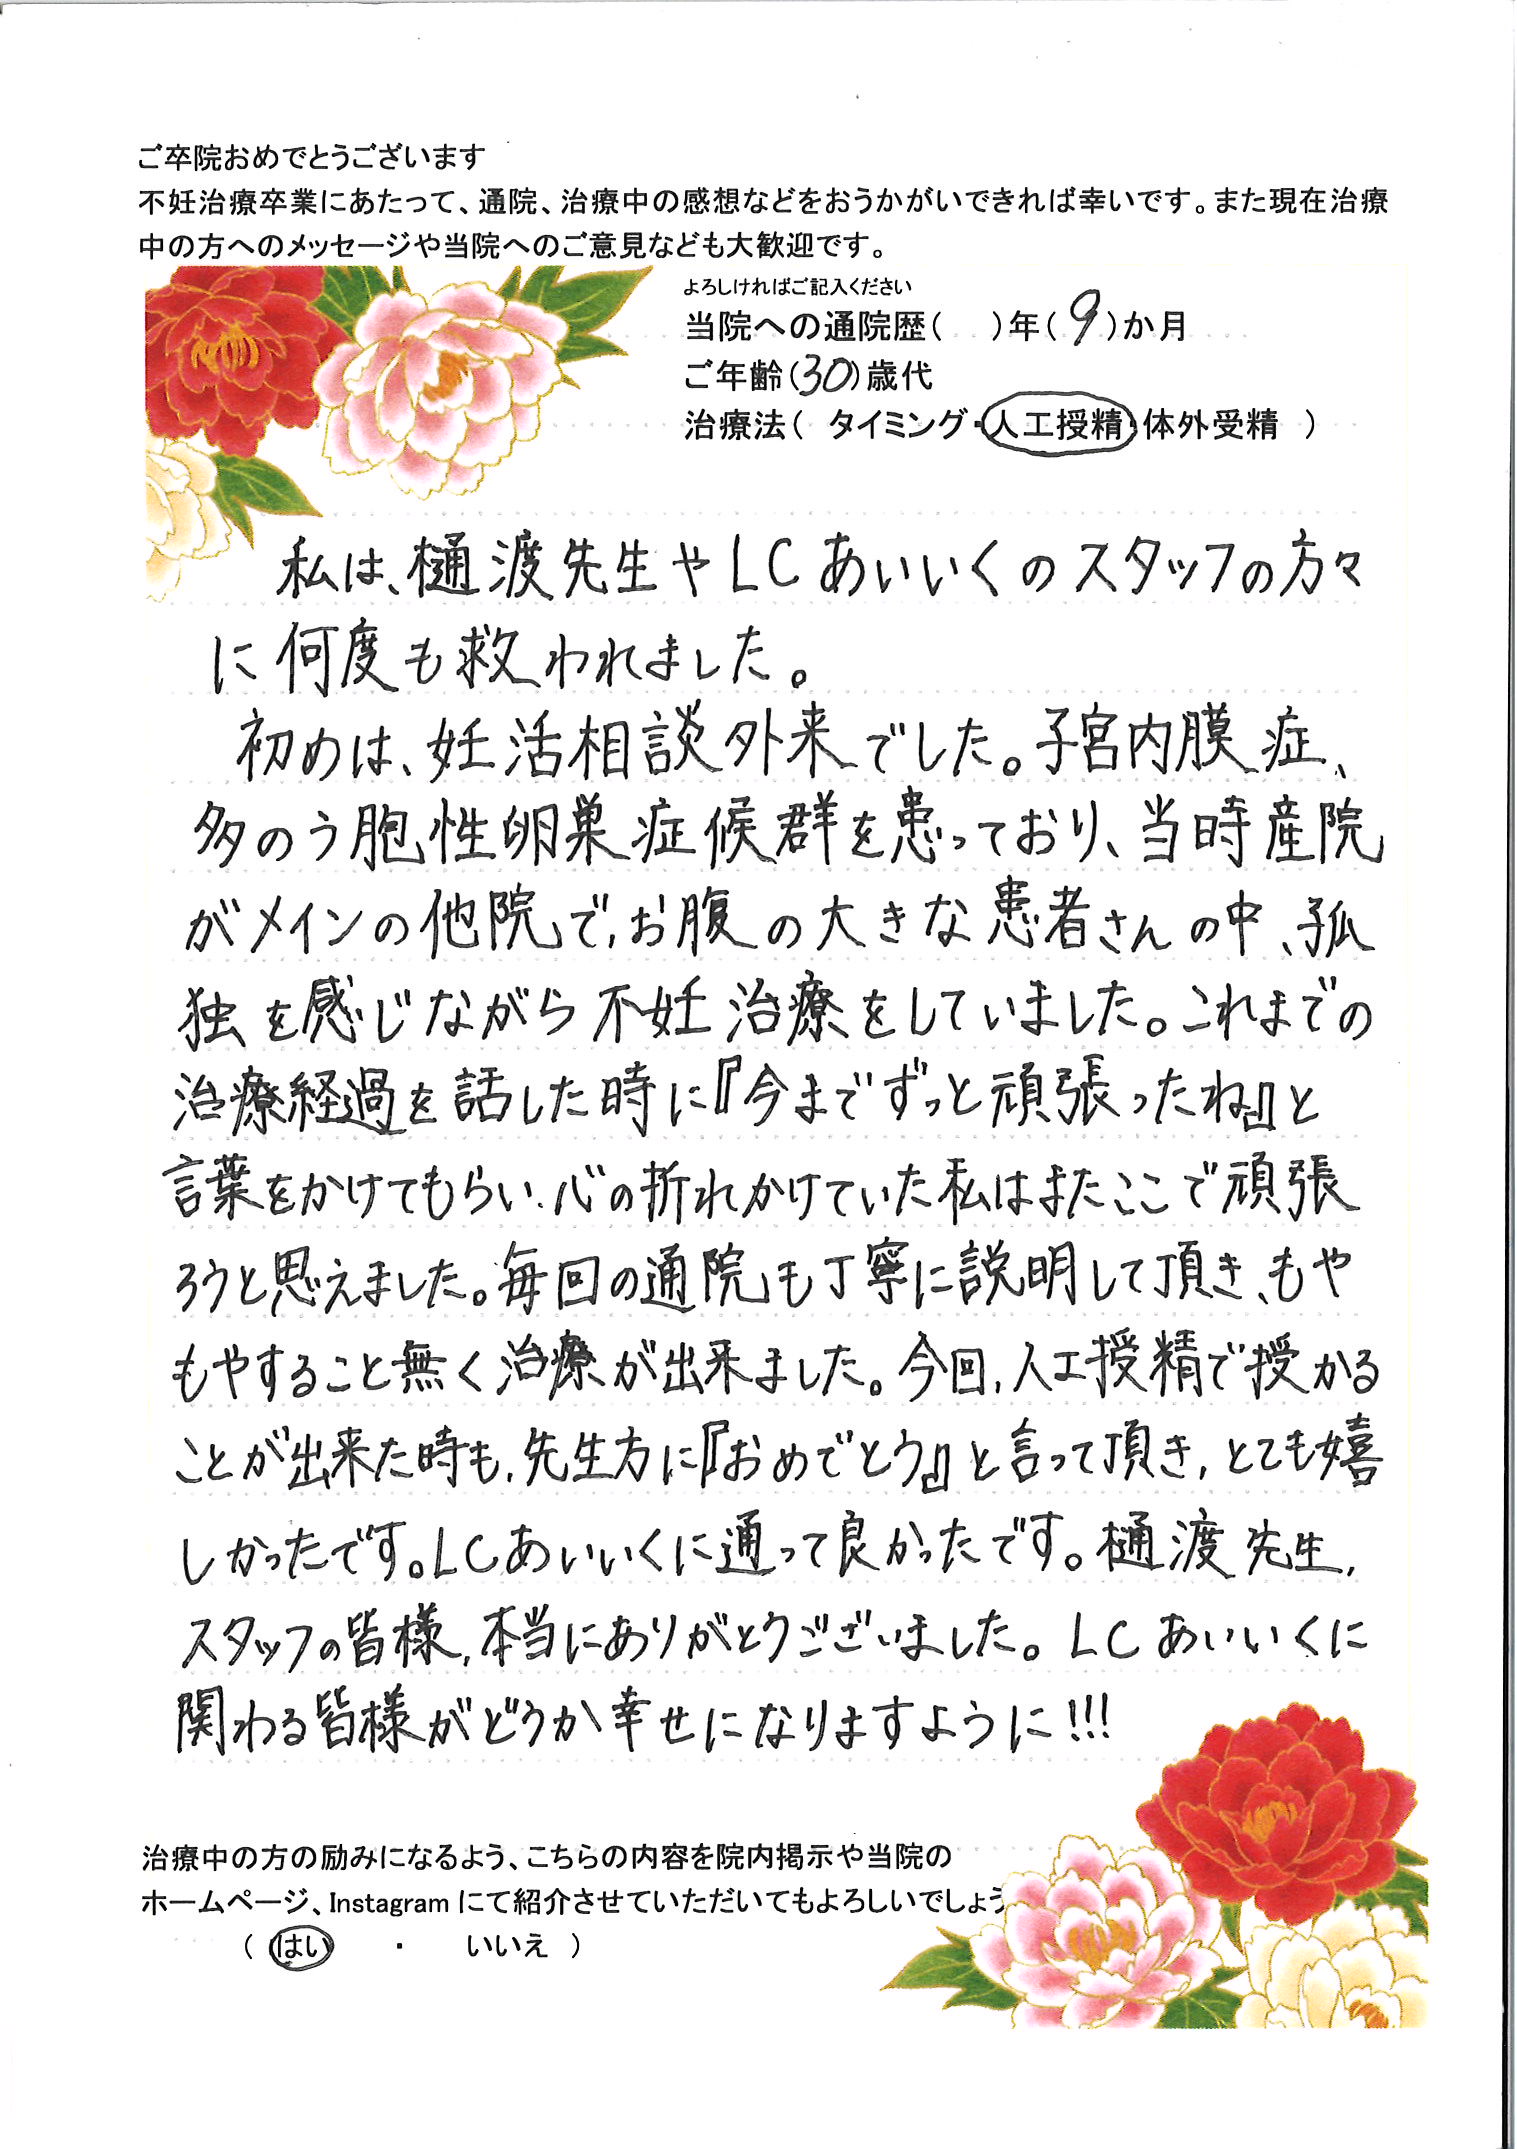 ご卒院おめでとうございます
不妊治療卒業にあたって、通院、治療中の感想などをおうかがいできれば幸いです。また現在治療
中の方へのメッセージや当院へのご意見なども大歓迎です。
よろしければご記入ください
当院への通院歴(　)年(9)か月
ご年齢(30)歳代
治療法(　タイミング・人工授精・体外受精　)
私は、樋渡先生やLCあいいくのスタッフの方々
に何度も救われました。
初めは、妊活相談外来でした。子宮内膜症、
多のう胞性卵巣症候群を患っており、当時産院
がメインの他院で、お腹の大きな患者さんの中、孤
独を感じながら不妊治療をしていました。これまでの
治療経過を話した時に『今までずっと頑張ったね』と
言葉をかけてもらい、心の折れかけていた私はまたここで頑張
ろうと思えました。毎回の通院も丁寧に説明して頂き、もや
もやすること無く治療が出来ました。今回、人工授精で授かる
ことが出来た時も、先生方に『おめでとう』と言って頂き、とても嬉
しかったです。LCあいいくに通って良かったです。樋渡先生、
スタッフの皆様、本当にありがとうございました。LCあいいくに
関わる皆様がどうか幸せになりますように!!!
治療中の方の励みになるよう、こちらの内容を院内掲示や当院の
ホームページ、Instagramにて紹介させていただいてもよろしいでしょう
(　はい　・　いいえ　)